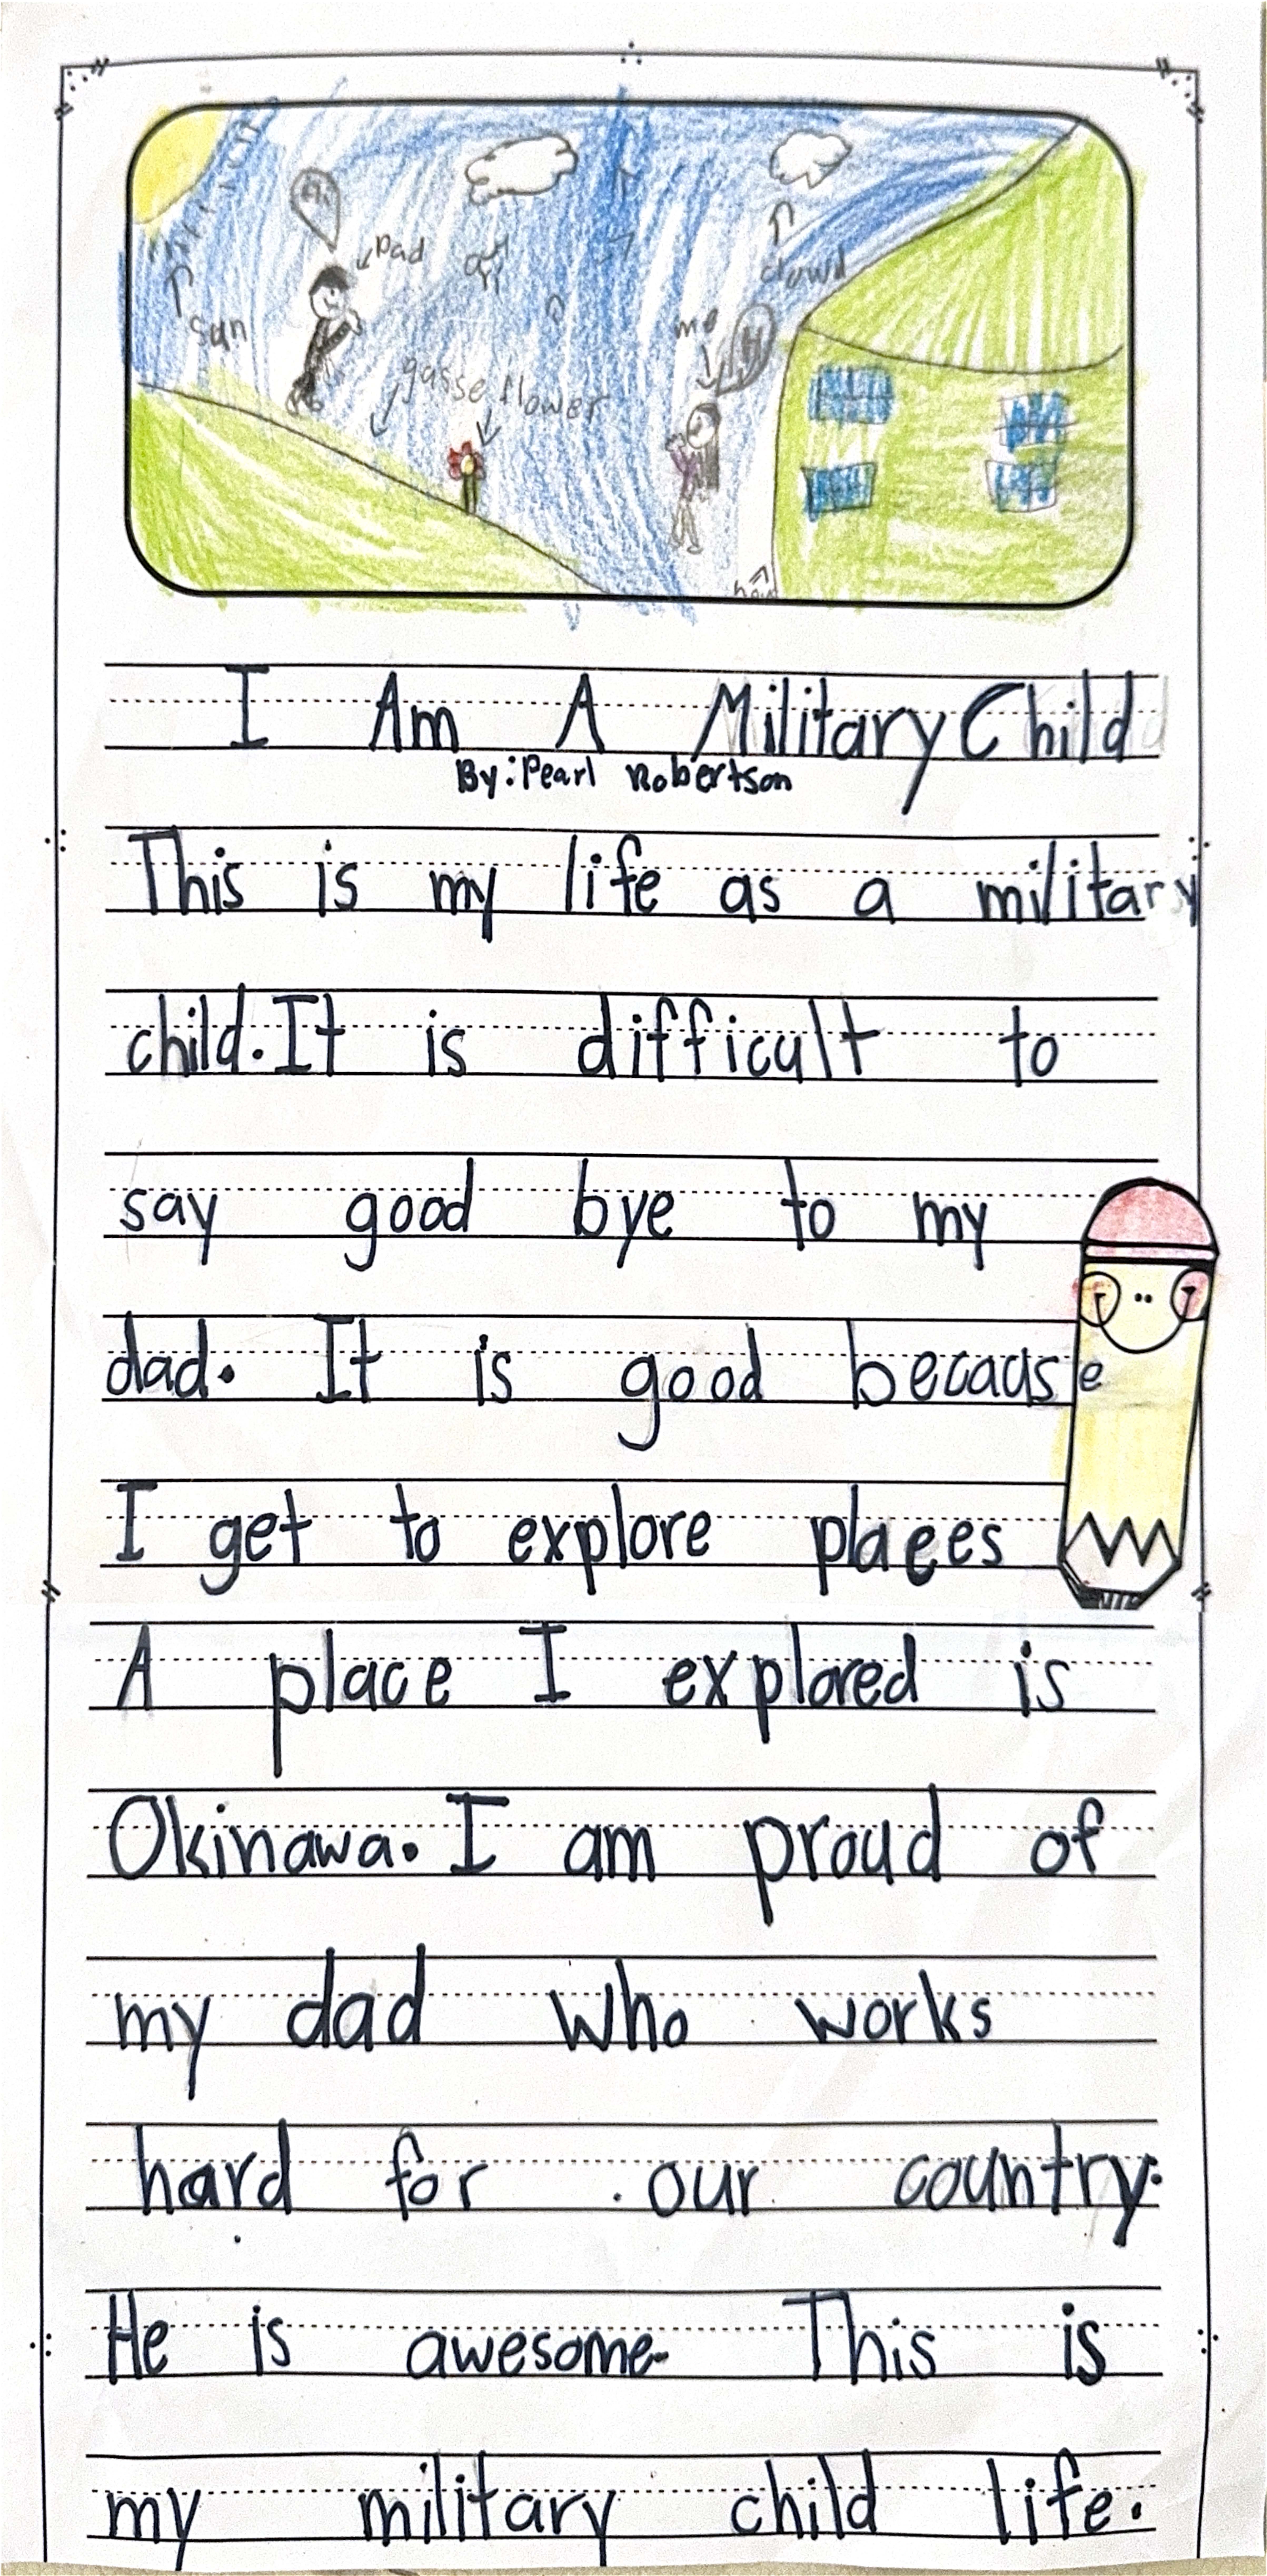 Hi
Dad
air
clowd
sun
me
H
gasse flower
I Am A Military Child
By: Pearl Robertson
This is my life as a military
child. It is difficult to
say good bye to my
dad. It is good becaus e
I get to explore places
A place I explored is
Okinawa. I am proud of
my dad who works
hard for our country.
He is awesome. This is
my military child life.